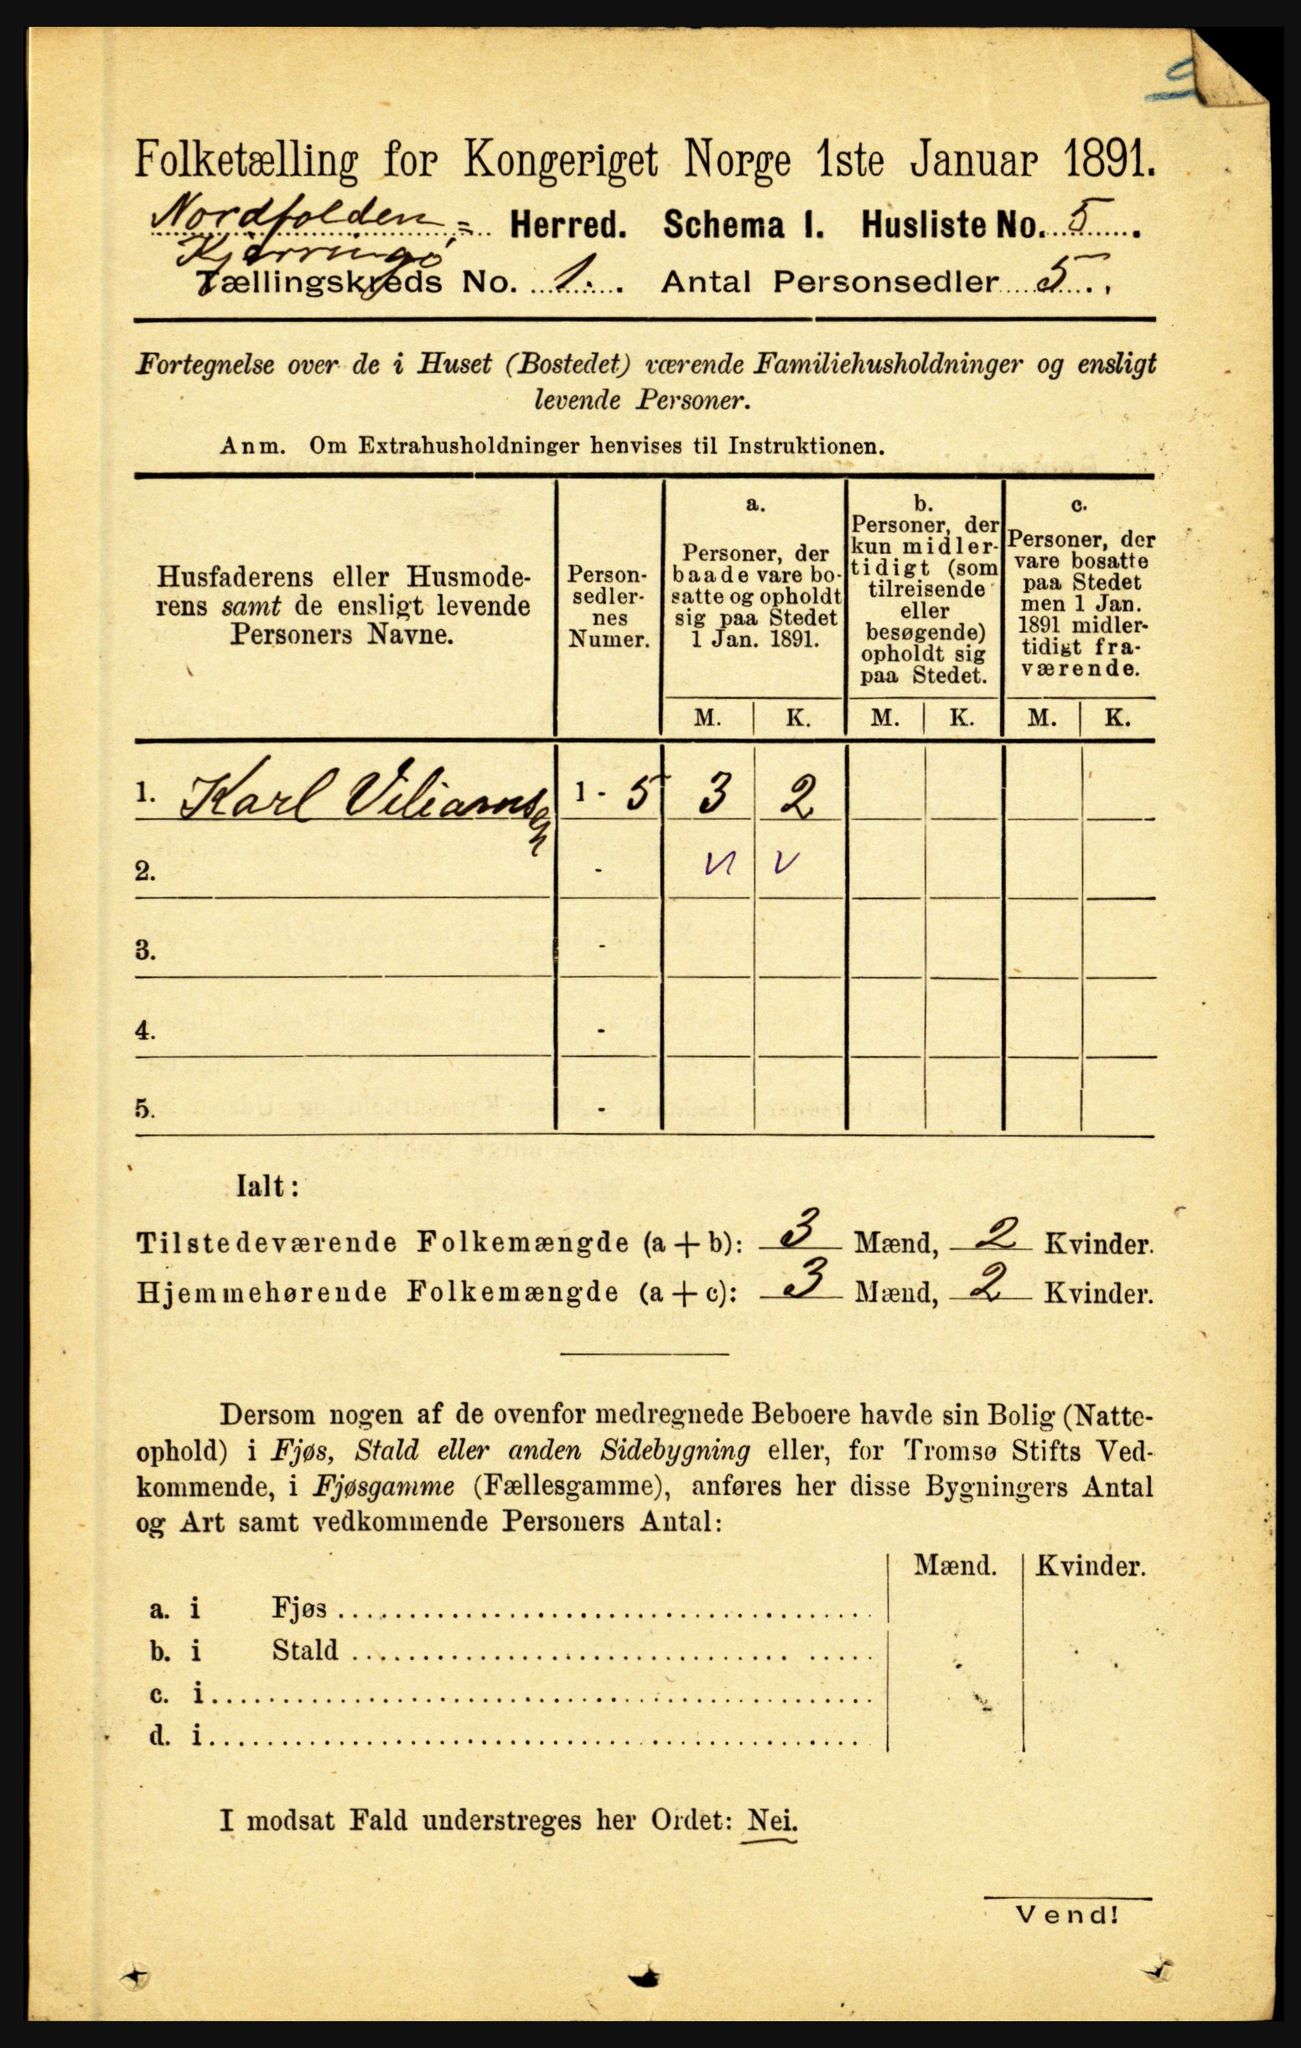 Folketælling for Kongeriget Norge 1ste Januar 1891.
Nordfolden = Herred. Schema I. Husliste No. 5.
Kjærringø
Tællingskreds No. 1. Antal Personsedler 5.
Fortegnelse over de i Huset (Bostedet) værende Familiehusholdninger og ensligt
levende Personer.
Anm. Om Extrahusholdninger henvises til Instruktionen.
Husfaderens eller Husmode-
rens samt de ensligt levende
Personers Navne.
Person-
sedler-
nes
Numer.
a.
Personer, der
baade vare bo-
satte og opholdt
sig paa Stedet
1 Jan. 1891.
b.
Personer, der
kun midler-
tidigt (som
tilreisende
eller
besøgende)
opholdt sig
paa Stedet.
c.
Personer, der
vare bosatte
paa Stedet
men 1 Jan.
1891 midler-
tidigt fra-
værende.
M. K. M. K. M. K.
1. Karl Viliamsen 1 - 5 3 2
2. -
3. -
4. -
5. -
Ialt:
Tilstedeværende Folkemængde (a + b): 3 Mænd, 2 Kvinder.
Hjemmehørende Folkemængde (a + c): 3 Mænd, 2 Kvinder.
Dersom nogen af de ovenfor medregnede Beboere havde sin Bolig (Natte-
ophold) i Fjøs, Stald eller anden Sidebygning eller, for Tromsø Stifts Ved-
kommende, i Fjøsgamme (Fællesgamme), anføres her disse Bygningers Antal
og Art samt vedkommende Personers Antal:
Mænd. Kvinder.
a. i Fjøs
b. i Stald
c. i
d. i
I modsat Fald understreges her Ordet: Nei.
Vend!